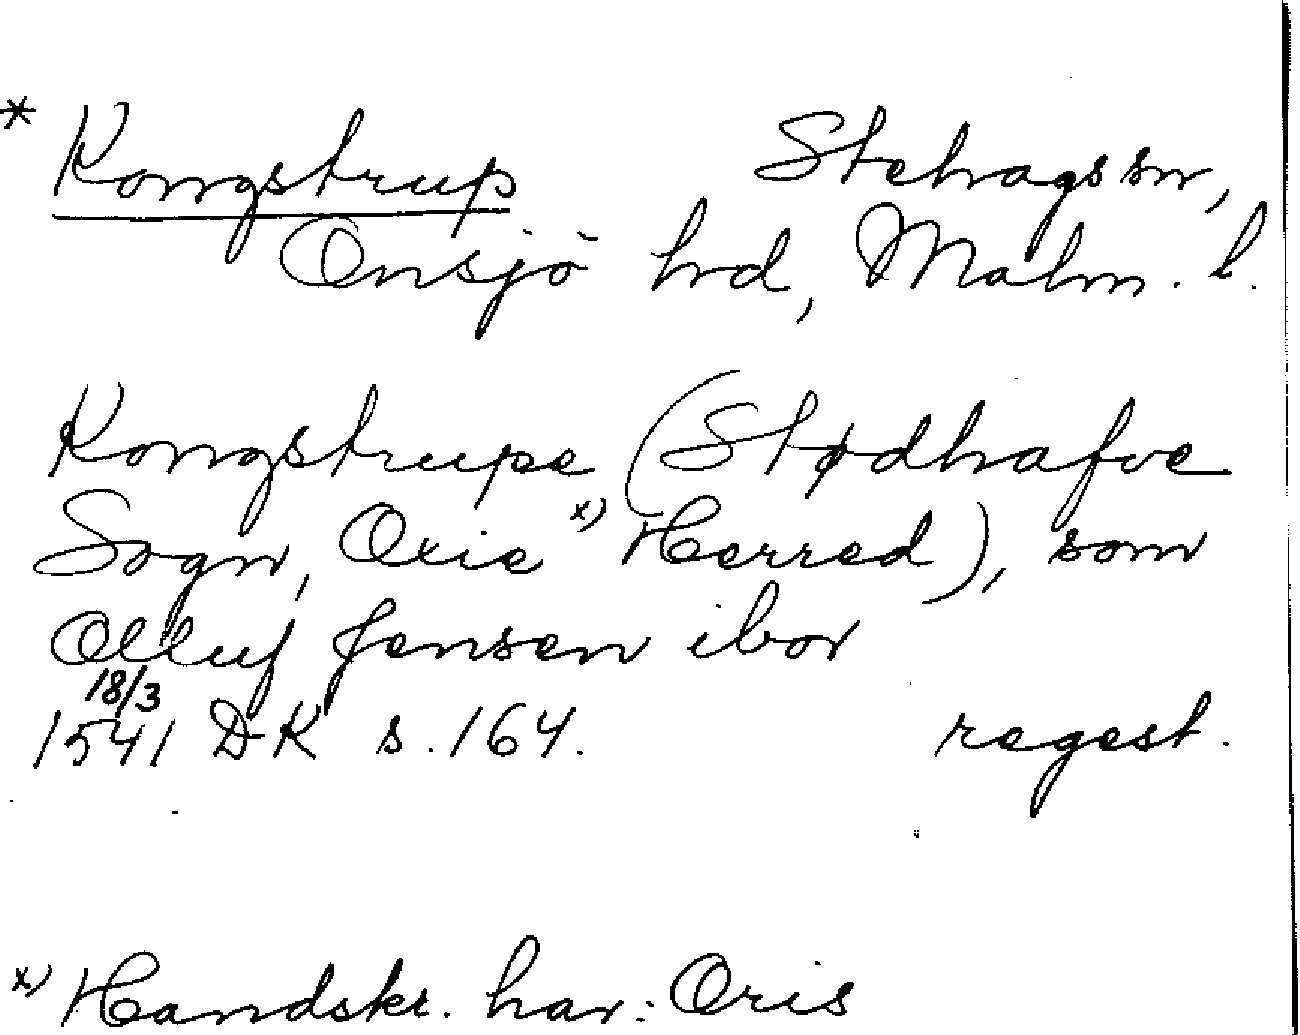 * Kongstrup Stehags sn,
Onsjö hd, Malm. l.
Kongstrupe (Stødhafve
Sogn, Oxie x) Herred), som
Olluf Jensen ibor
18/3
1541 DK s. 164. regest.
x) Handskr. har: Oris